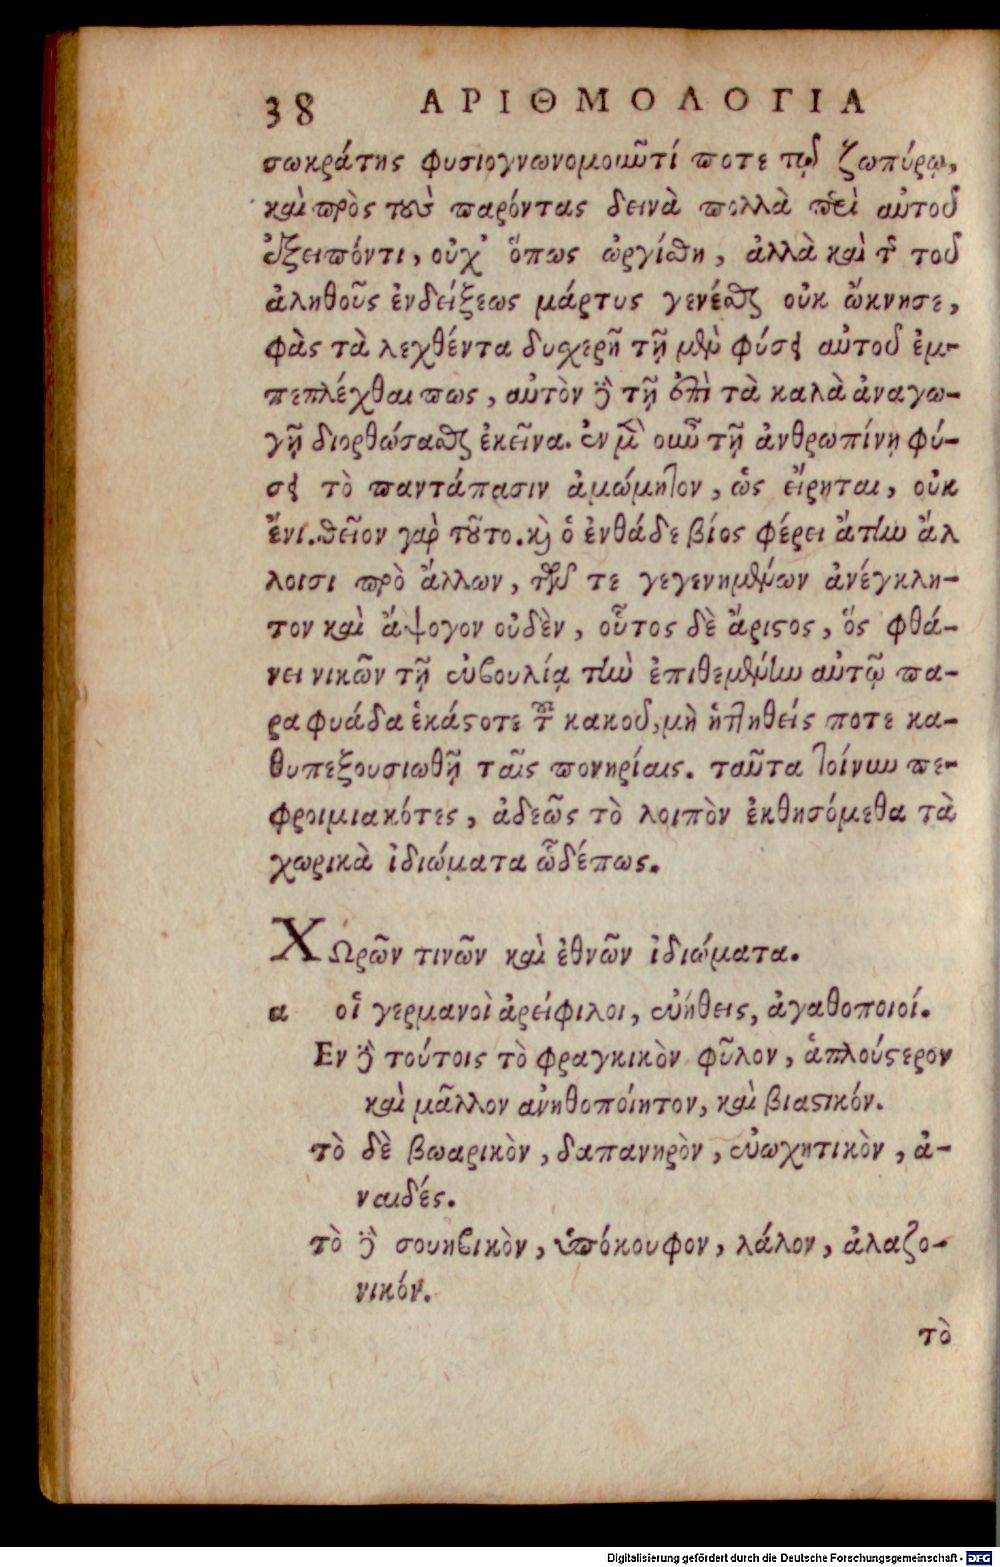 38 ΑΡΙΘΜΟΛΟΓΙΑ
σωκράτης φυσιογνωνομοιῶντί ποτε τῷ ζωπύρῳ,
καὶ πρὸς τοὺς παρόντας δεινὰ πολλὰ περὶ αὐτοῦ
ἐξειπόντι, οὐχ᾽ ὅπως ὠργίσθη, ἀλλὰ καὶ τῆς τοῦ
ἀληθοῦς ἐνδείξεως μάρτυς γενέσθαι οὐκ ὤκνησε,
φὰς τὰ λεχθέντα δυσχερῆ τῇ μὲν φύσει αὐτοῦ ἐμ-
πεπλέχθαι πως, αὐτὸν δὲ τῇ ἐπὶ τὰ καλὰ ἀναγω-
γῇ διορθώσασθαι ἐκεῖνα. ἐν μὲν οὖν τῇ ἀνθρωπίνῃ φύ-
σει τὸ παντάπασιν ἀμώμητον, ὡς εἴρηται, οὐκ
ἔνι. θεῖον γὰρ τοῦτο. καὶ ὁ ἐνθάδε βίος φέρει ἄτην ἄλ
λοισι πρὸ ἄλλων, τῶν τε γεγενημένων ἀνέγκλη-
τον καὶ ἄψογον οὐδὲν, οὗτος δὲ ἄριστος, ὅς φθά-
νει νικῶν τῇ εὐβουλίᾳ τὴν ἐπιθεμένην αὐτῷ πα-
ραφυάδα ἑκάστοτε τοῦ κακοῦ, μὴ ἡττηθείς ποτε κα-
θυπεξουσιωθῇ ταῖς πονηρίαις. ταῦτα τοίνυν πε-
φροιμιακότες, ἀδεῶς τὸ λοιπὸν ἐκθησόμεθα τὰ
χωρικὰ ἰδιώματα ὧδέπως.
ΧΩρῶν τινῶν καὶ ἐθνῶν ἰδιώματα.
α οἱ γερμανοὶ ἀρείφιλοι, εὐήθεις, ἀγαθοποιοί.
Εν δὲ τούτοις τὸ φραγκικὸν φῦλον, ἁπλούστερον
καὶ μᾶλλον ἀνηθοποίητον, καὶ βιαστικόν.
τὸ δὲ βωαρικὸν, δαπανηρὸν, εὐωχητικὸν, ἀ-
ναιδές.
τὸ δὲ σουηβικὸν, ὑπόκουφον, λάλον, ἀλαζο-
νικόν.
τὸ
Digitalisierung gefördert durch die Deutsche Forschungsgemeinschaft - DFG